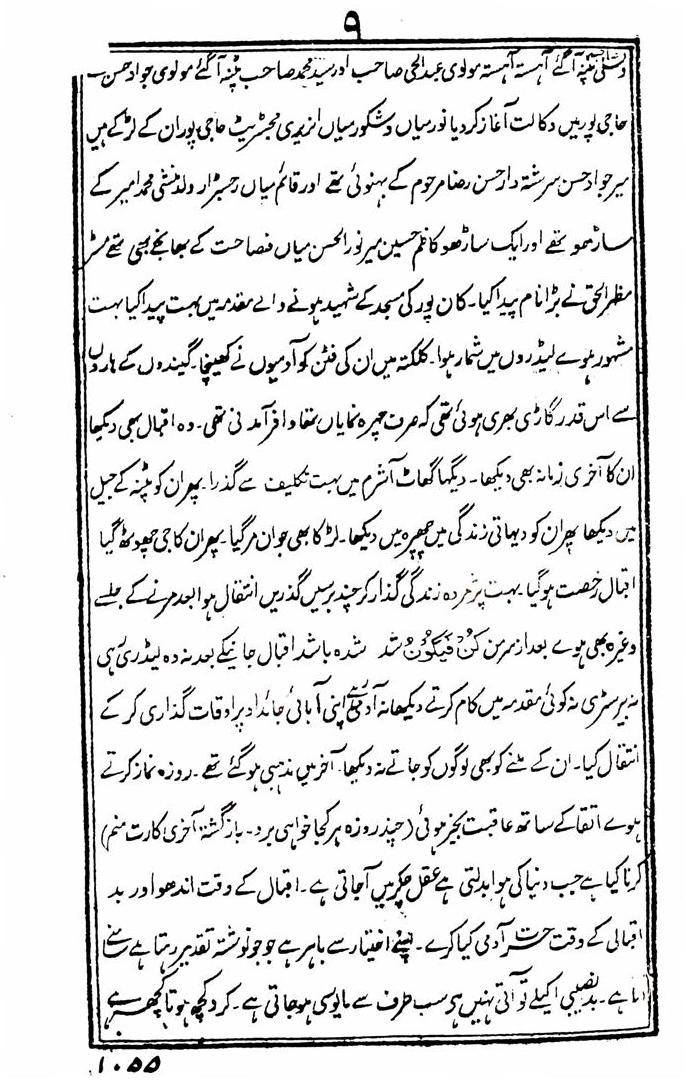 ۹
پٹنہ آگئے آہستہ آہستہ مولوی عبدالحئی صاحب اور سید محمد صاحب پٹنہ آگئے مولوی جواد حسن
حاجی پور میں وکالت آغاز کر دیا نور میاں و شکور میاں انریری مجسٹریٹ حاجی پور ان کے لڑکے ہیں
میر جواد حسن سرشتہ دار حسن رضا مرحوم کے بہنوئی تھے اور قائم میاں رجسٹرار ولد منشی محمد امیر کے
ساڑھو تھے اور ایک ساڑھو کاظم حسین میر نورالحسن میاں فصاحت کے بھانجے بھی تھے مسٹر
مظہرالحق نے بڑا نام پیدا کیا۔ کان پور کی مسجد کے شہید ہونے والے مقدمہ میں بہت پیدا کیا بہت
مشہور ہوے لیڈروں میں شمار ہوا۔ کلکتہ میں ان کی فٹن کو آدمیوں نے کھینچا۔ گیندوں کے ہاروں
سے اس قدر گاڑی بھری ہوئی تھی کہ صرف چہرہ نمایاں تھا وافر آمدنی تھی۔ وہ اقبال بھی دیکھا
ان کا آخری زمانہ بھی دیکھا۔ دیگہا گھاٹ آشرم میں بہت تکلیف سے گذرا۔ پھر ان کو پٹنہ کے جیل
میں دیکھا پھر ان کو دیہاتی زندگی میں چھپرہ میں دیکھا۔ لڑکا بھی جوان مر گیا۔ پھر ان کا جی چھوٹ گیا
اقبال رخصت ہو گیا۔ بہت پژمردہ زندگی گذار کر چند برسیں گذریں انتقال ہوا بعد مرنے کے جلسے
وغیرہ بھی ہوے بعد از مرمن کن فیکون شد شدہ باشد اقبال جانیکے بعد نہ وہ لیڈری رہی
نہ بیرسٹری نہ کوئی مقدمہ میں کام کرتے دیکھا نہ آدمی اپنی آبائی جائداد پر اوقات گذاری کر کے
انتقال کیا۔ ان کے ملنے کو بھی لوگوں کو جاتے نہ دیکھا۔ آخر میں مذہبی ہو گئے تھے۔ روزہ نماز کرتے
ہوے اتقا کے ساتھ عاقبت بخیر ہوئی (چند روزہ ہر کجا خواہی برد۔ بازگشت آخری کارت منم)
کرنا کیا ہے جب دنیا کی ہوا بدلتی ہے عقل چکر میں آجاتی ہے۔ اقبال کے وقت اندھو اور بد
اقبالی کے وقت آدمی کیا کرے۔ اپنے اختیار سے باہر ہے جو جو نوشتہ تقدیر رہتا ہے سامنے
آتا ہے۔ بدنصیبی اکیلے تو آتی نہیں ہر سب طرف سے مایوسی ہو جاتی ہے۔ کرو کچھ ہوتا کچھ ہے
۱۰۵۵